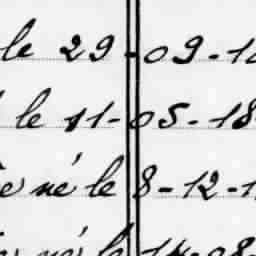 le 29-09-1
le 11-05-18
né le 8-12-1
né le